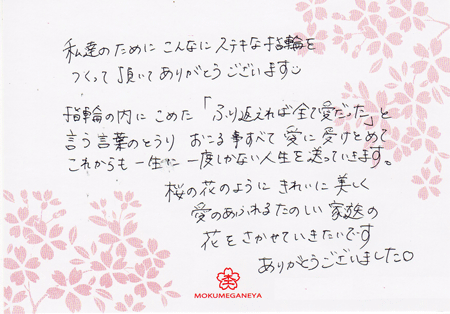 私達のために こんなに ステキな指輪を
つくって頂いてありがとうございます
指輪の内に こめた「ふり返えれば全て愛だった」と
言う言葉のとうり おこる事すべて 愛に 受けとめて
これからも 一生に 一度しかない人生を送っていきます。
桜の花のように きれいに 美しく
愛のあふれるたのしい 家族の
花をさかせていきたいです
ありがとうございました。
MOKUMEGANEYA